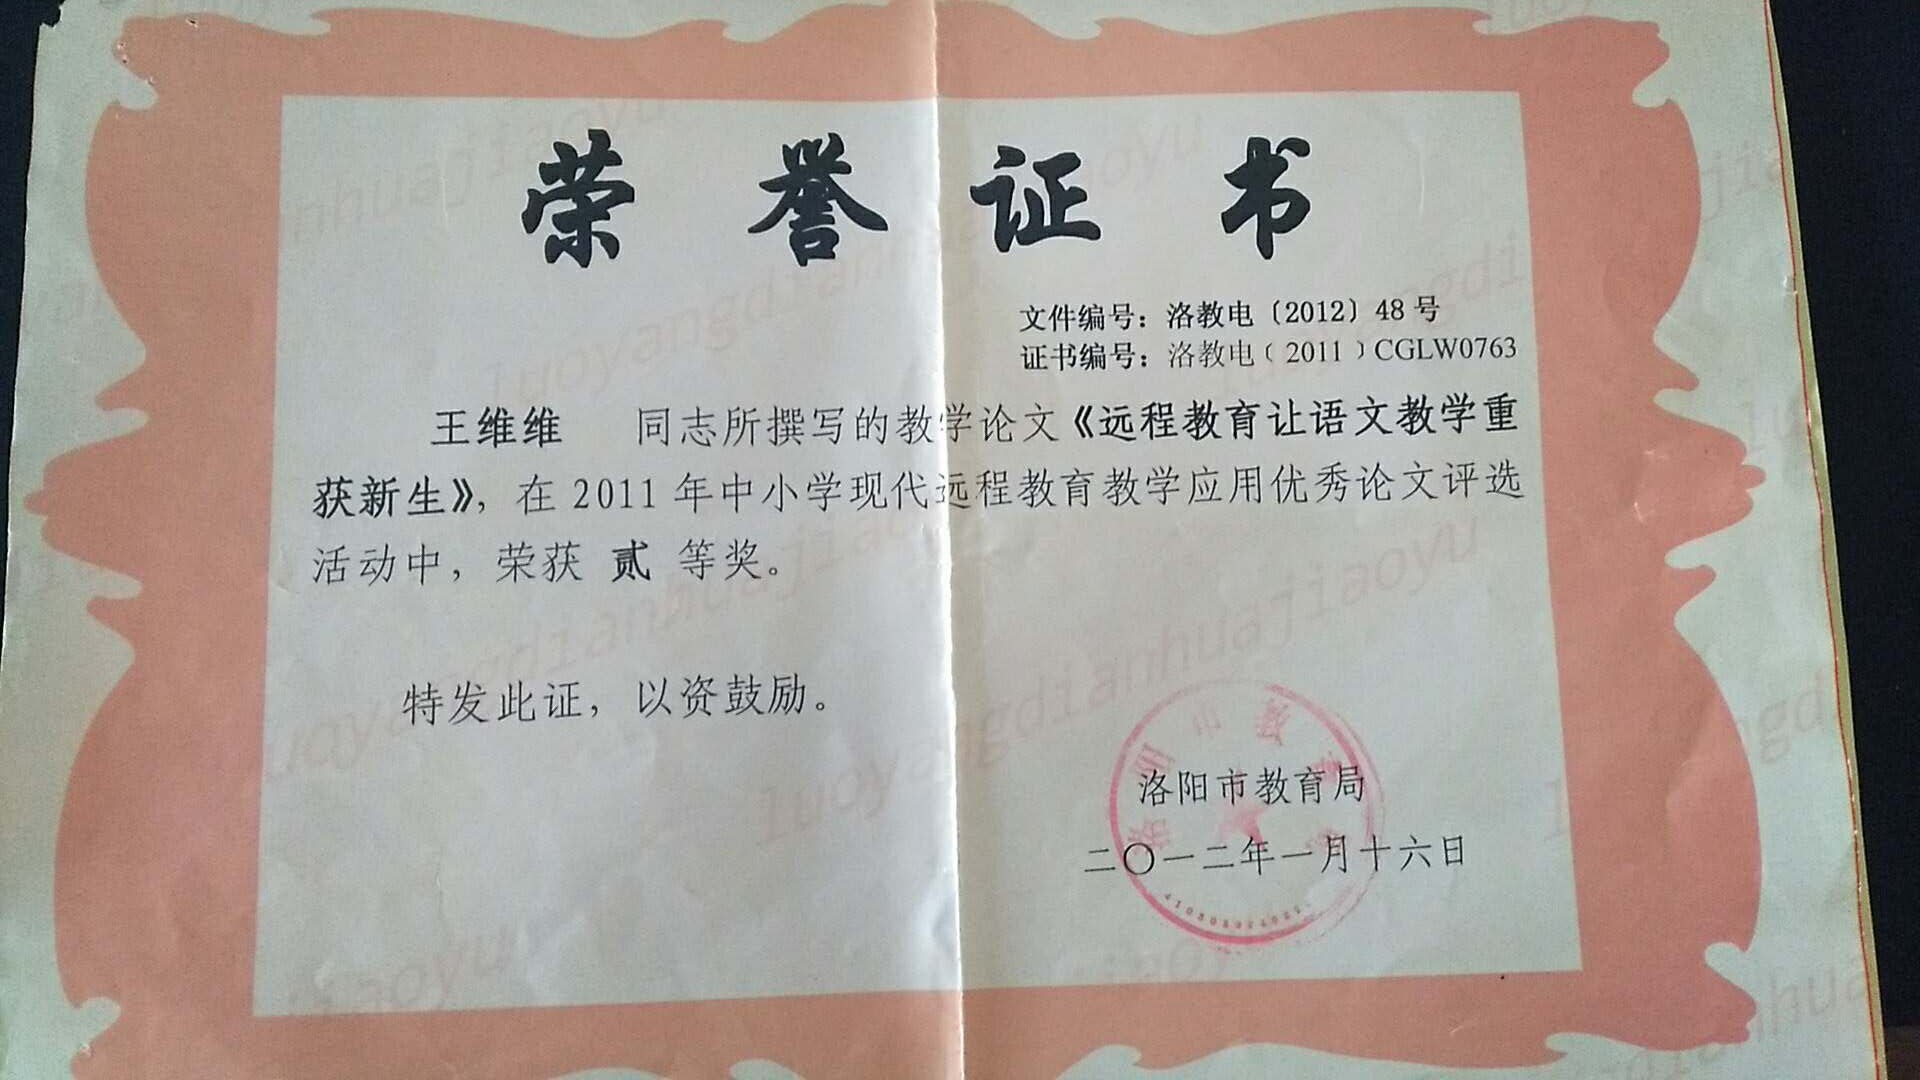 荣誉证书
文件编号：洛教电〔2012〕48号
证书编号：洛教电﹝2011﹞CGLW0763
王维维 同志所撰写的教学论文《远程教育让语文教学重
获新生》，在2011年中小学现代远程教育教学应用优秀论文评选
活动中，荣获 贰 等奖。
特发此证，以资鼓励。
洛阳市教育局
二〇一二年一月十六日
luoyangdianhuajiaoyu